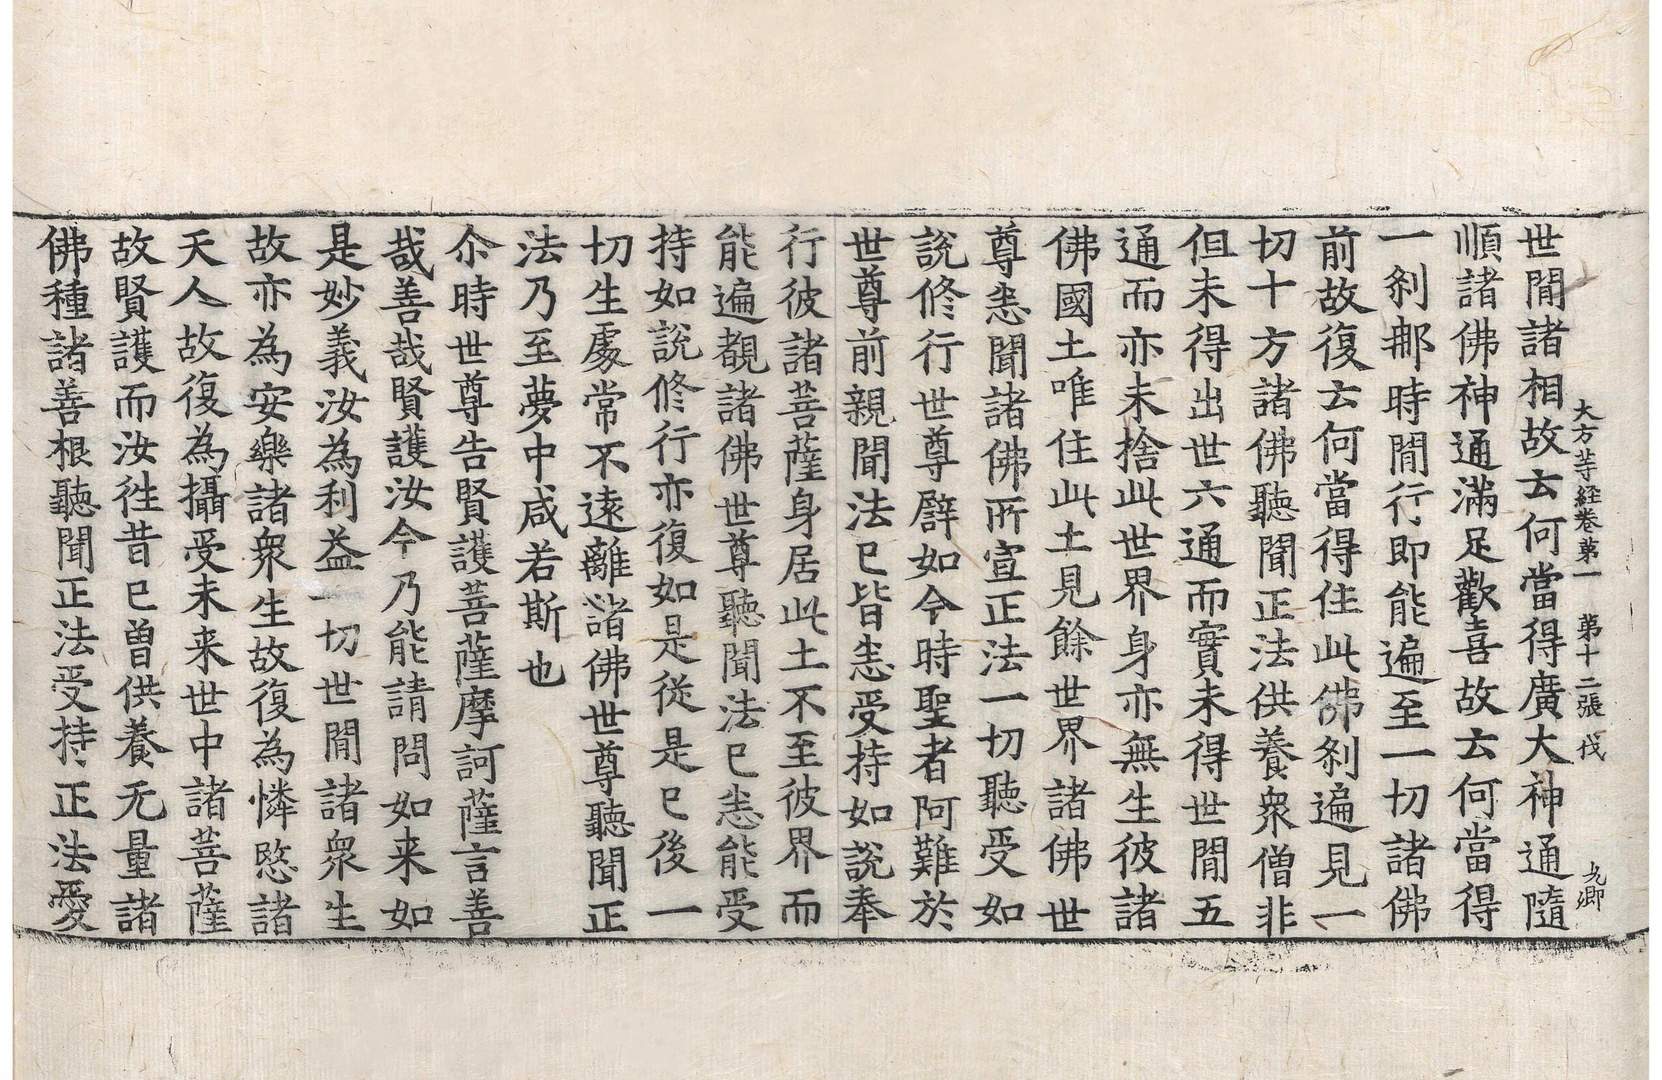 大方等経卷苐一　第十二張　伐　九卿
世間諸相故去何當得廣大神通隨
順諸佛神通滿足歡喜故去何當得
一刹那時間行即能遍至一切諸佛
前故復去何當得住此佛刹遍見一
切十方諸佛聽聞正法供養衆僧非
但未得出世六通而實未得世間五
通而亦未捨此世界身亦無生彼諸
佛國土唯住此土見餘世界諸佛世
尊悉聞諸佛所宣正法一切聽受如
說修行世尊辟如今時聖者阿難於
世尊前親聞法已皆悉受持如說奉
行彼諸菩薩身居此土不至彼界而
能遍覩諸佛世尊聽聞法已悉能受
持如說修行亦復如是從是已後一
切生處常不遠離諸佛世尊聽聞正
法乃至夢中咸若斯也
尒時世尊告賢護菩薩摩訶薩言善
哉善哉賢護汝今乃能請問如来如
是妙義汝為利益一切世間諸衆生
故亦為安樂諸衆生故復為憐愍諸
天人故復為攝受未来世中諸菩薩
故賢護而汝徃昔已曾供養无量諸
佛種諸善根聽聞正法受持正法愛